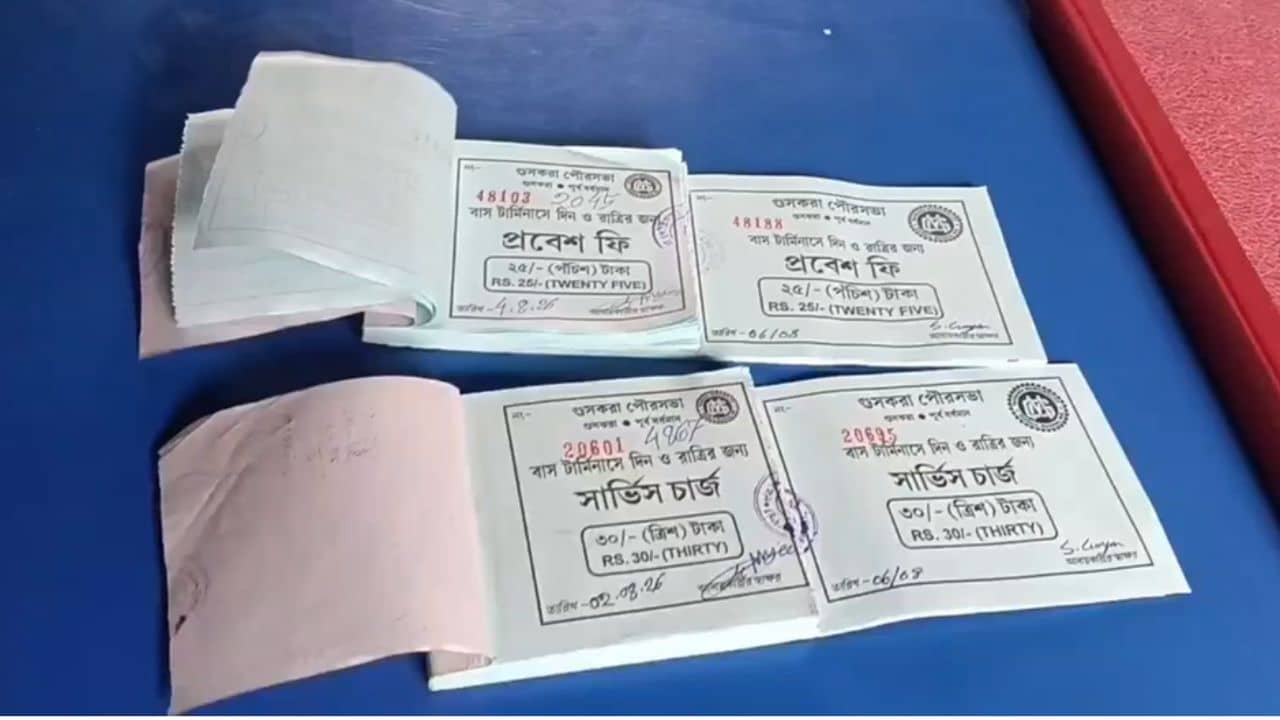 নং-
গুসকরা পৌরসভা
গুসকরা • পূর্ব বর্ধমান
48103 2045
বাস টার্মিনাসে দিন ও রাত্রির জন্য
প্রবেশ ফি
২৫/- (পঁচিশ) টাকা
RS. 25/- (TWENTY FIVE)
তারিখ - 4.8.26
আদায়কারীর স্বাক্ষর
নং-
গুসকরা পৌরসভা
গুসকরা • পূর্ব বর্ধমান
48188
বাস টার্মিনাসে দিন ও রাত্রির জন্য
প্রবেশ ফি
২৫/- (পঁচিশ) টাকা
RS. 25/- (TWENTY FIVE)
তারিখ - 06/08
আদায়কারীর স্বাক্ষর
নং-
গুসকরা পৌরসভা
গুসকরা • পূর্ব বর্ধমান
20601
বাস টার্মিনাসে দিন ও রাত্রির জন্য
সার্ভিস চার্জ
৩০/- (ত্রিশ) টাকা
RS. 30/- (THIRTY)
তারিখ - 02.08.26
আদায়কারীর স্বাক্ষর
নং-
গুসকরা পৌরসভা
গুসকরা • পূর্ব বর্ধমান
20695
বাস টার্মিনাসে দিন ও রাত্রির জন্য
সার্ভিস চার্জ
৩০/- (ত্রিশ) টাকা
RS. 30/- (THIRTY)
তারিখ - 06/08
আদায়কারীর স্বাক্ষর